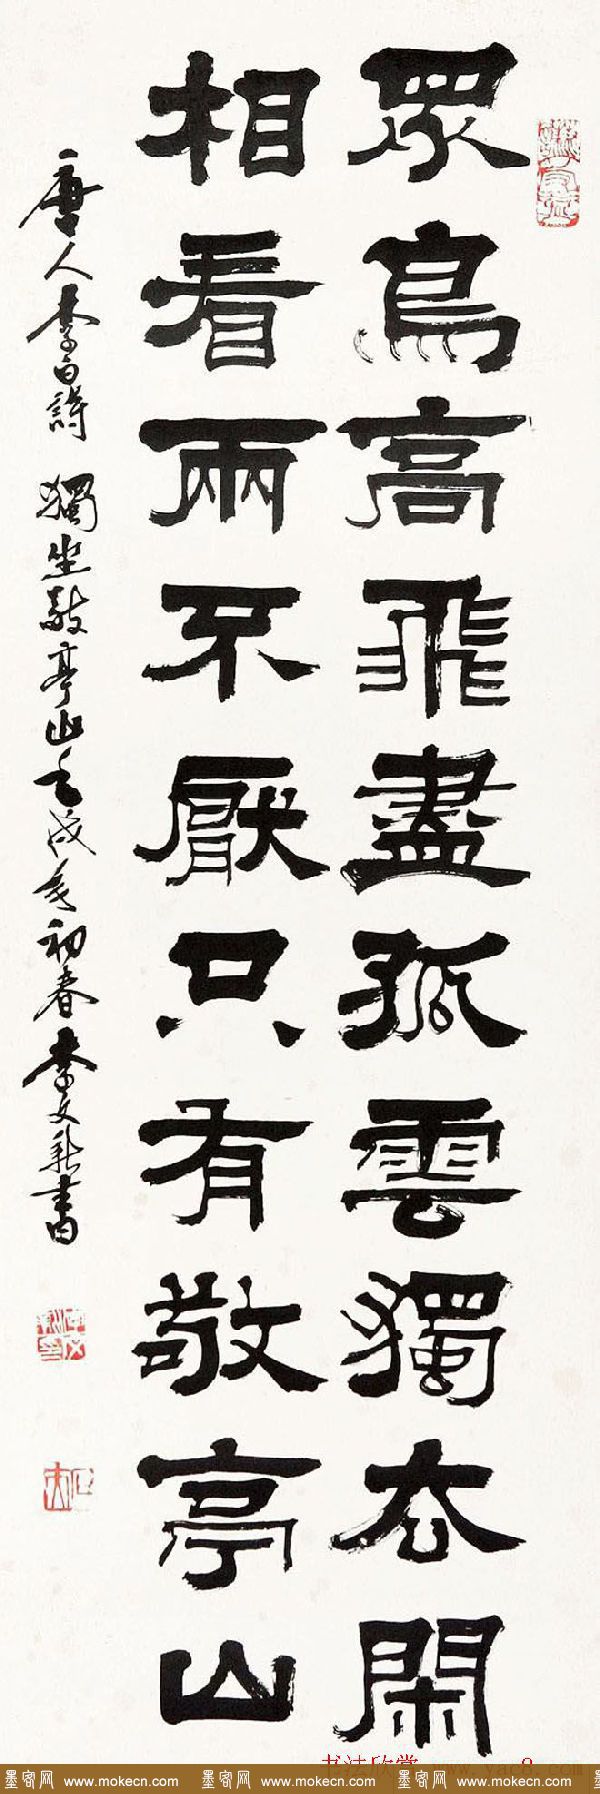 眾鳥高飛盡孤雲獨去閑
相看兩不厭只有敬亭山
唐人李白詩 獨坐敬亭山壬戌年初春李文新書
书法欣赏 www.yac8.com
墨客网 www.mokecn.com 墨客网 www.mokecn.com 墨客网 www.mokecn.com 墨客网